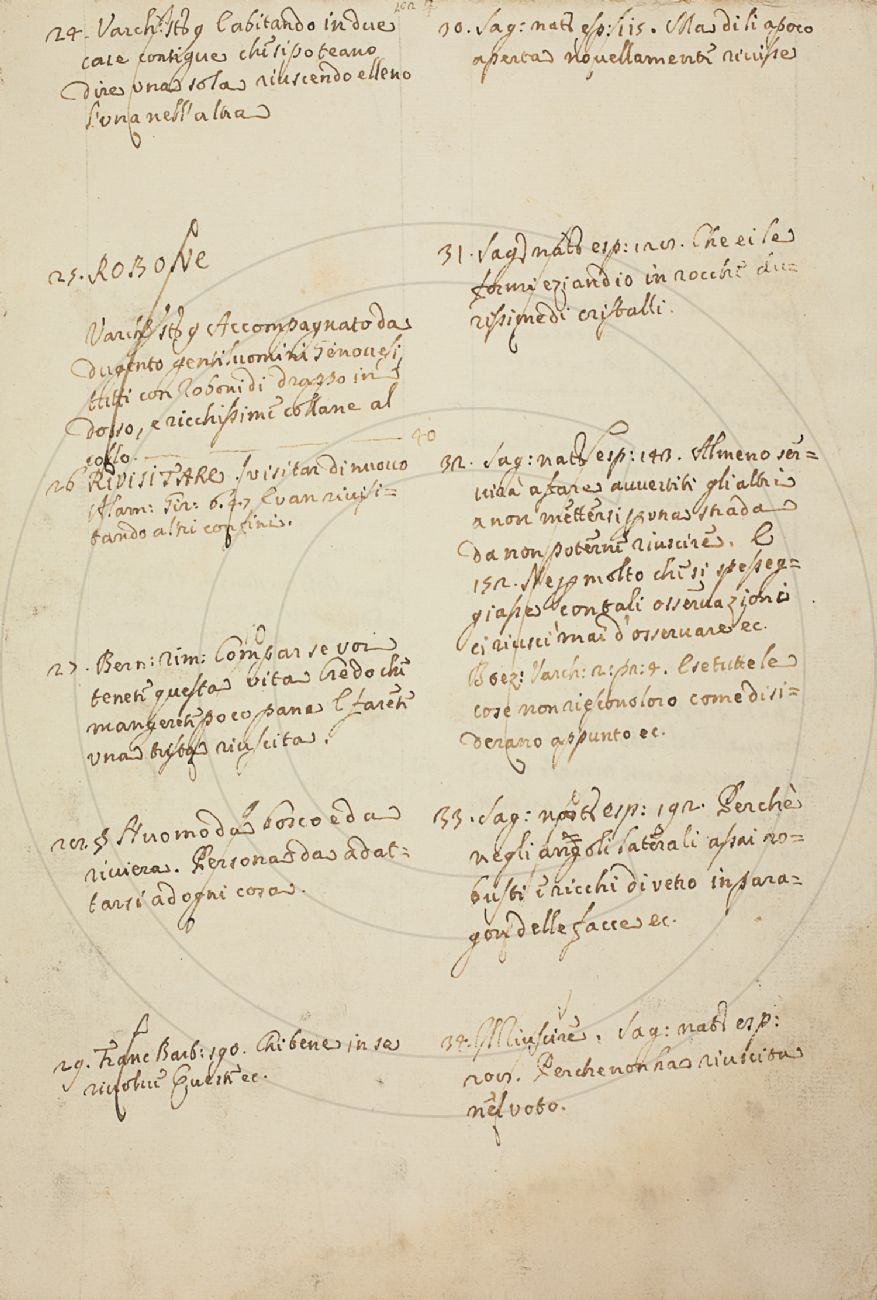 24. Varch: st: 9 E abitando in due
case contigue che si poteano
dire una sola riuscendo elleno
l'una nell'altra
25. ROBONE
Varch: st: 9 Accompagnato da
dugento gentiluomini Genovesi
tutti con Roboni di drappo in
dosso, e ricchissime collane al
collo. 40
26 RIVISITARE. visitar di nuovo
Alam: Gir: 6. E van rivisi-
tando altri confini.
27. Bern: rim: Compar se voi
tenete questa vita Credo che
mangerete poco pane E farete
una trista riuscita.
28. § Huomo da bosco e da
riviera. Persona da adat-
tarsi ad ogni cosa.
29. Franc Barb: 190. Chi bene in se
rivolve Queste ec.
30. Sag: nat: esp: 115. Ma di lì a poco
aperta novellamente rivisse
31. Sag: nat: esp: 128. Che ei se
formi eziandio in rocche du-
rissime di cristalli.
32. Sag: nat: esp: 143. Almeno ser-
virà a fare avvertiti gli altri
a non mettersi p una strada
da non poterne riuscire. E
152. Ne p molto che si spesseg-
giasse con tali osservazioni
ci riuscì mai d'osservare ec.
Boez: Varch: 2: pr: 4. E se tutte le
cose non riescono loro come disi-
derano appunto ec.
33. Sag: nat: esp: 192. Perchè
negli angoli laterali assai ro-
busti e ricchi di vetro in para-
gon delle facce ec.
34. Riuscire. Sag: nat: esp:
208. Perche non ha riuscita
nel voto.